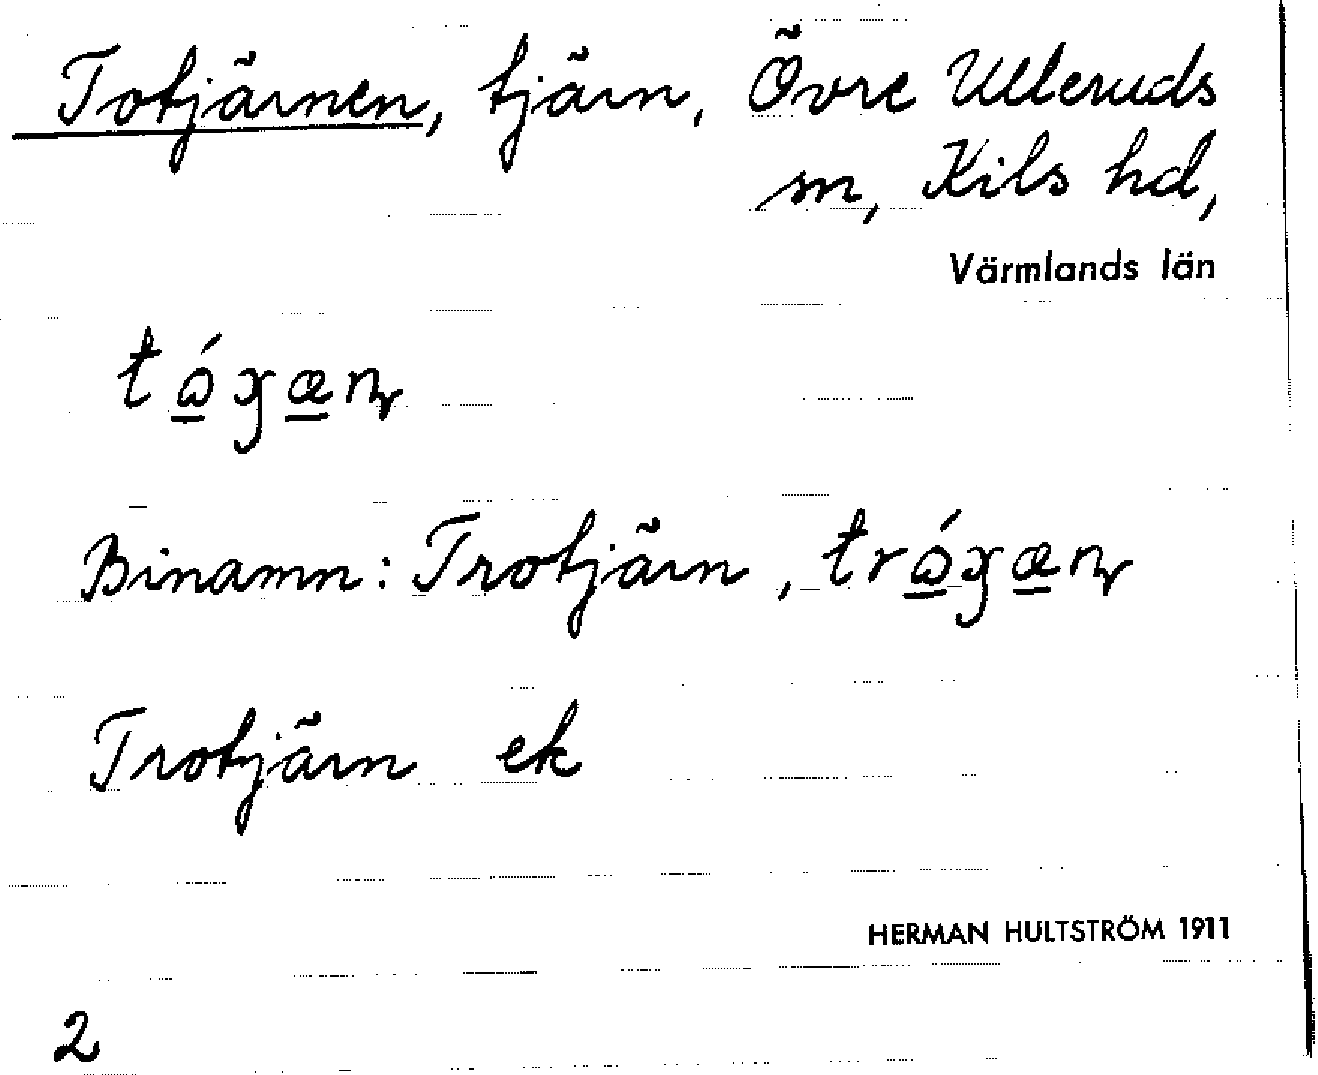 Totjärnen, tjärn, Övre Ulleruds
sn, Kils hd,
Värmlands län
Binamn: Trotjärn,
Trotjärn ek
HERMAN HULTSTRÖM 1911
2